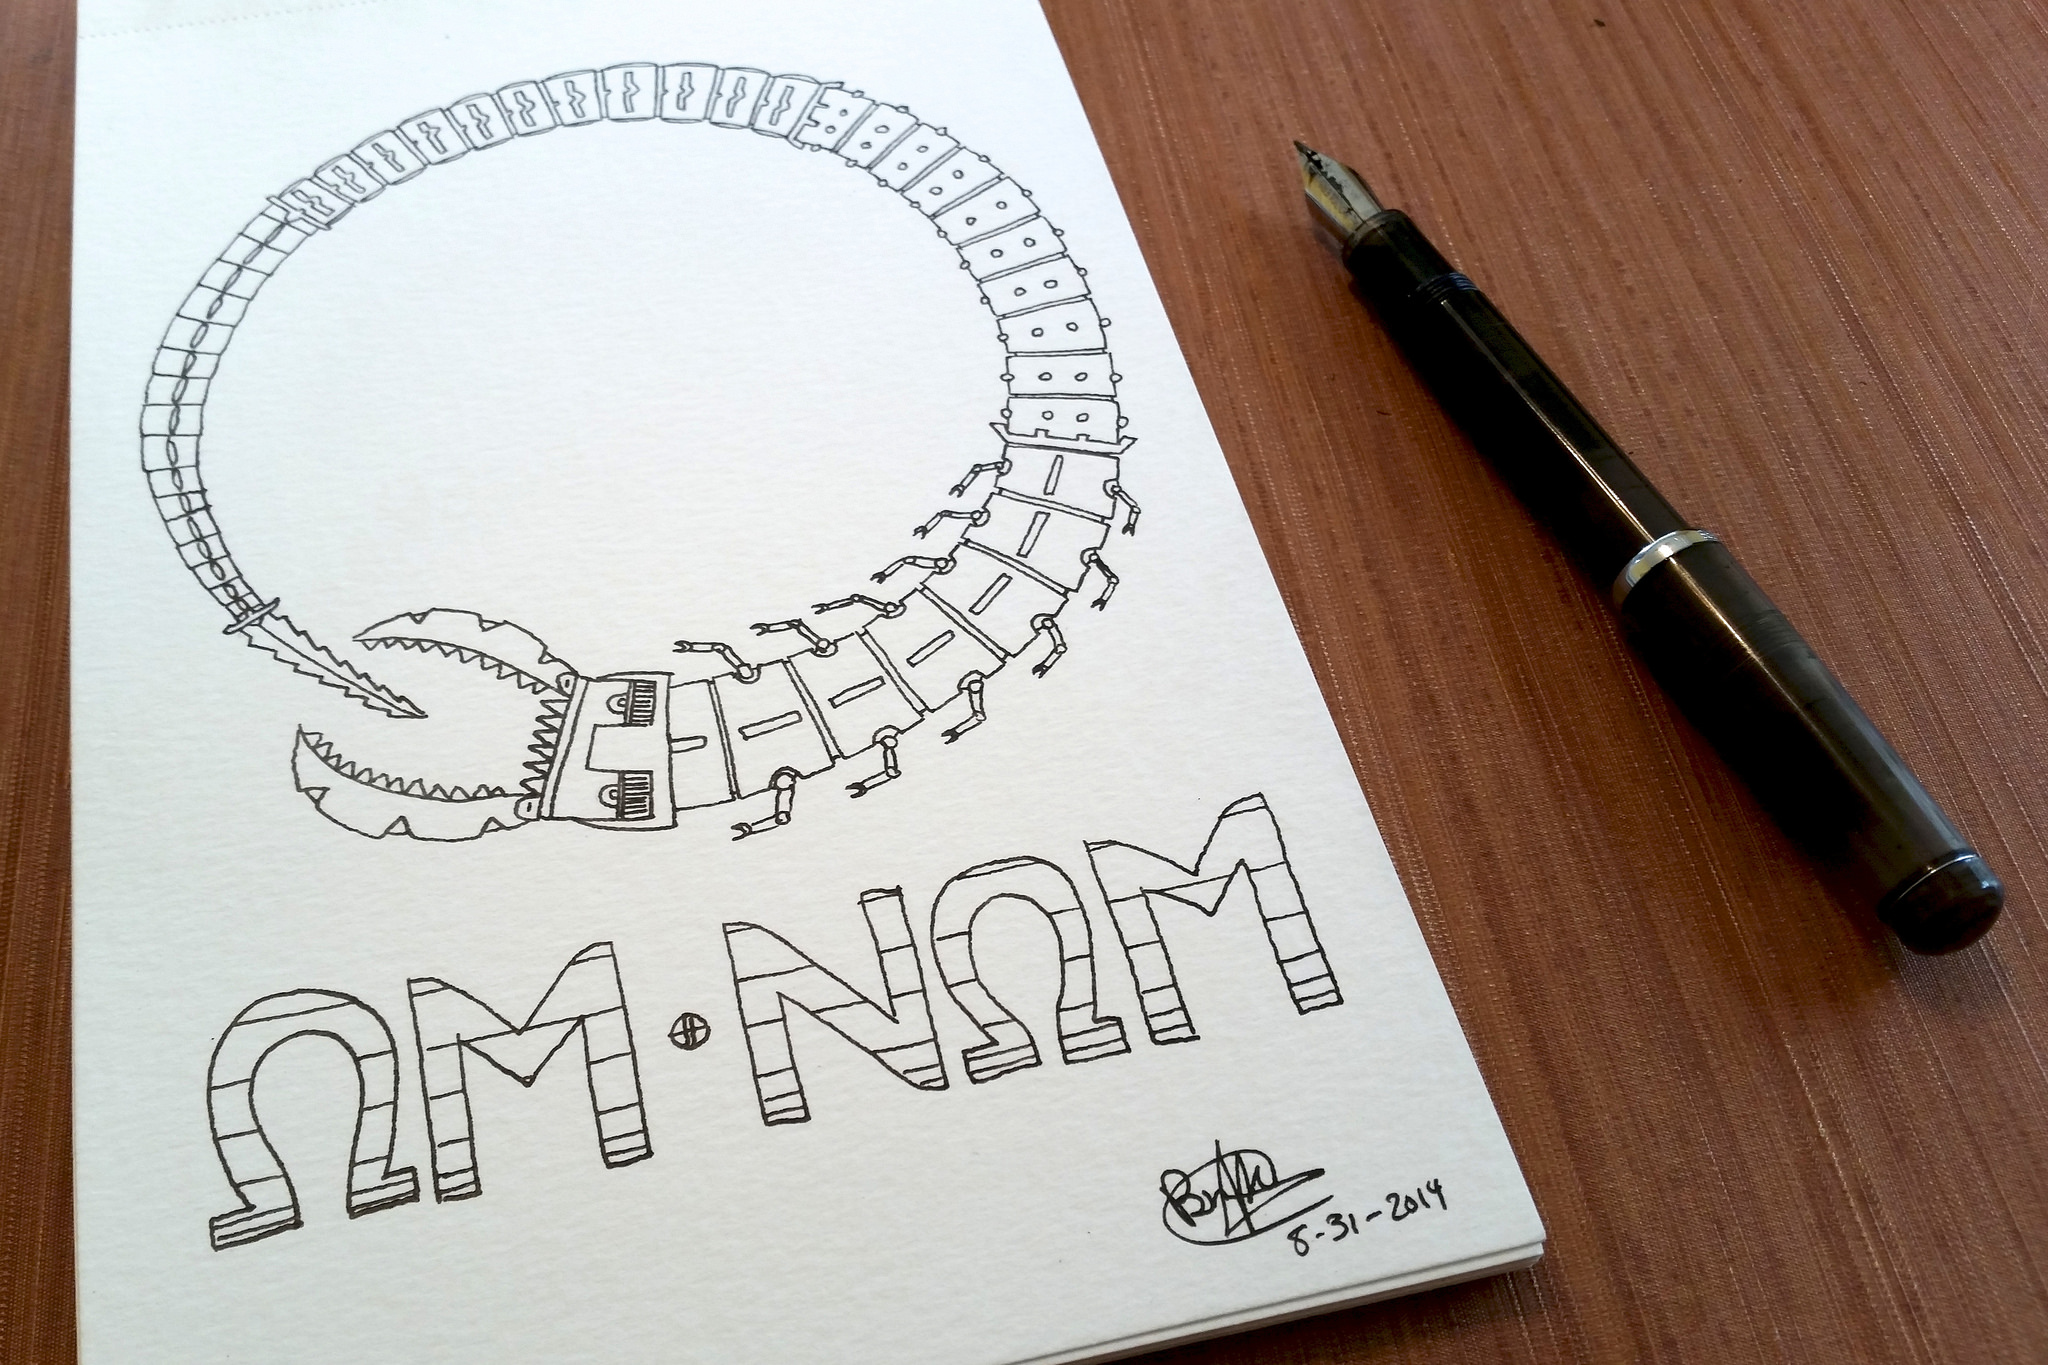 ΩM·NΩM
8-31-2014